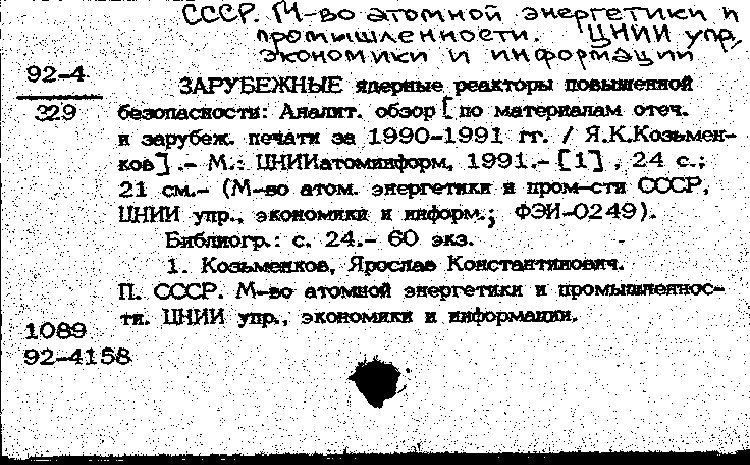 СССР. М-во атомной энергетики и
промышленности. ЦНИИ упр.,
экономики и информации
92-4
329
ЗАРУБЕЖНЫЕ ядерные реакторы повышенной
безопасности: Аналит. обзор [ по материалам отеч.
и зарубеж. печати за 1990-1991 гг. / Я.К.Козьмен-
ков].- М.: ЦНИИатоминформ, 1991.- [1] , 24 с.;
21 см.- (М-во атом. энергетики и пром-сти СССР,
ЦНИИ упр., экономики и информ.; ФЭИ-0249).
Библиогр.: с. 24.- 60 экз.
1. Козьменков, Ярослав Константинович.
П. СССР. М-во атомной энергетики и промышленнос-
ти. ЦНИИ упр., экономики и информации.
1089
92-4158